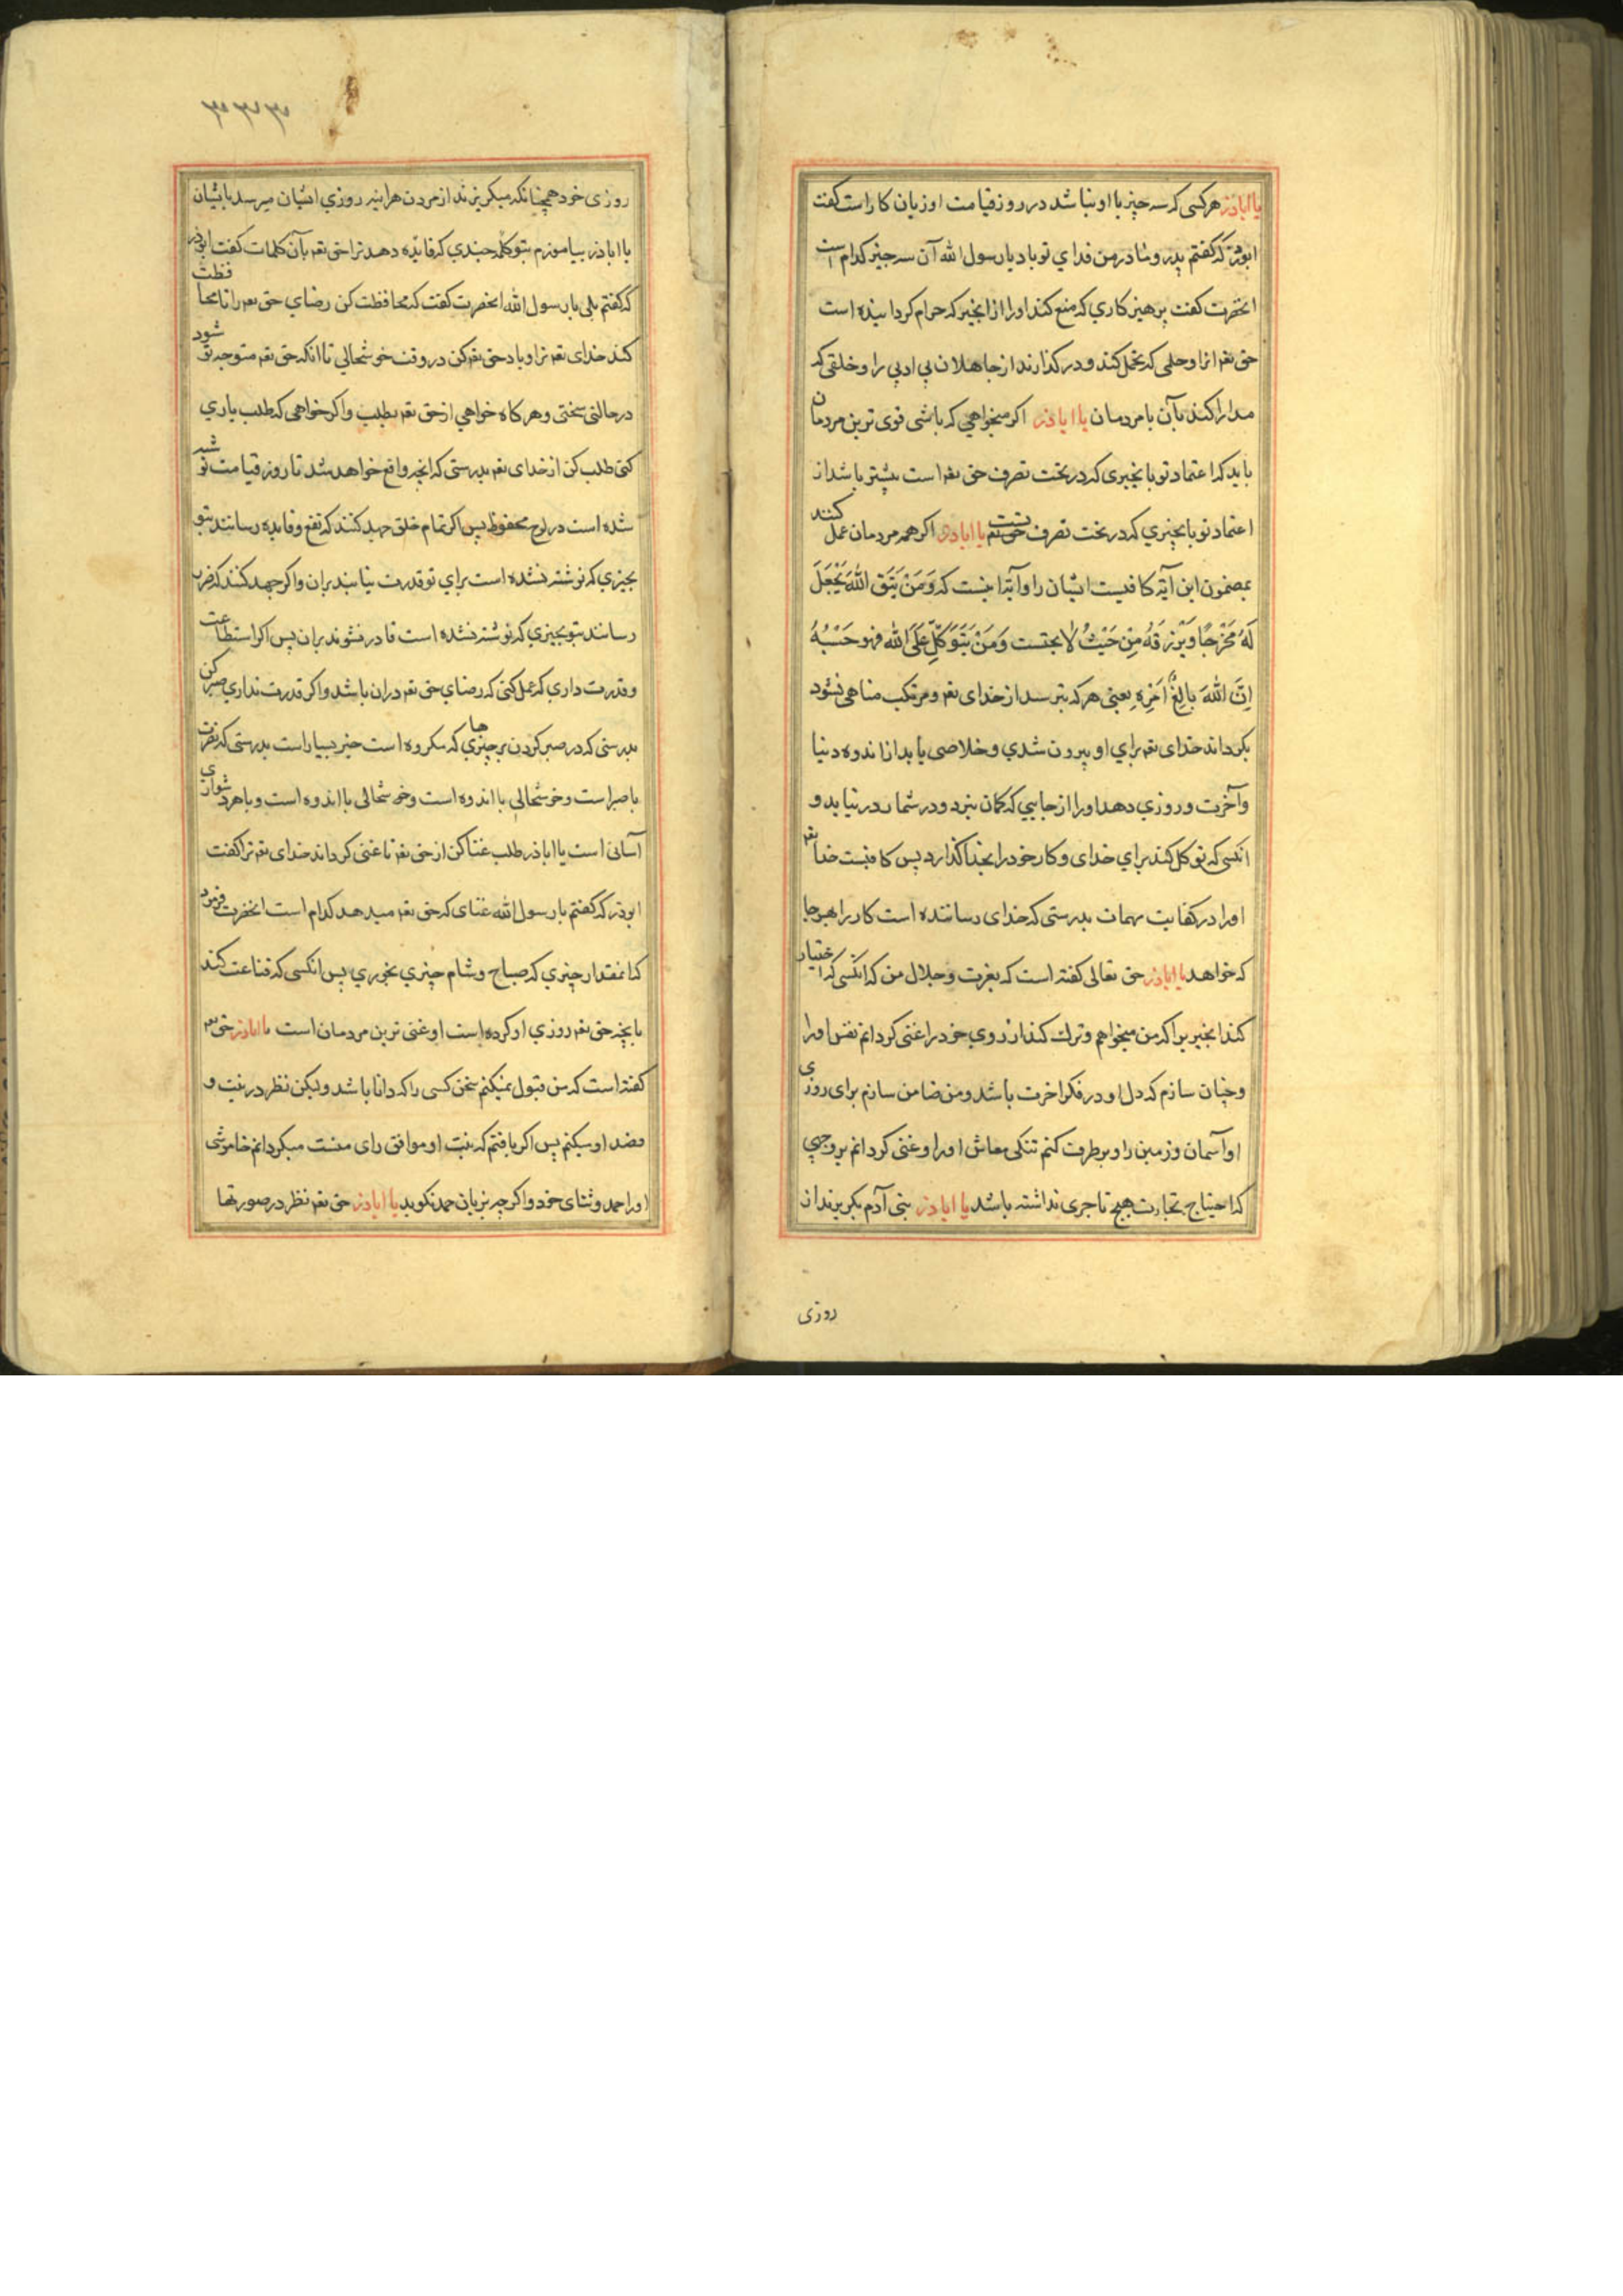 یا اباذر هر کسی که سه چیز با او نباشد در روز قیامت او زیان کار است گفت
ابوذر که گفتم پدر و مادر من فدای تو باد یا رسول الله آن سه چیز کدام است
انحضرت گفت پرهیز کاری که منع کند او را از انچیز که حرام گردانیده است
حق تعم انرا و حلمی که تحمل کند و در گذراند از جاهلان بی ادبی را و خلقی که
مدارا کند بآن با مردمان یا اباذر اکر میخواهی که باشی قوی ترین مردمان
باید که اعتماد تو بانچیزی که در تحت تصرف حق تعم است بیشتر باشد از
اعتماد تو بانچیزی که در تحت تصرف تست یا اباذر اکر همه مردمان عمل کنند
بمضمون این آیه کافیست ایشان را و آیه اینست که وَمَنْ یَتَقِ اللهَ یَجْعَلَ
لَهُ مَخْرَجًا وَیَرْزقهُ مِنْ حَیْثُ لا یحتسب وَمَنْ یَتَوَکَّل عَلَی الله فهو حَسْبُهُ
اِنَّ اللهَ بالِغُ اَمْرِهِ یعنی هر که بترسد از خدای تعم و مرتکب مناهی نشود
بکرداند خدای تعم برای او بیرون شدی و خلاصی یابد از اندوه دنیا
و آخرت و روزی دهد او را از جایی که کمان نبرد و در شمار در نیاید و
انکسی که توکل کند برای خدای و کار خود را بخدا گذارد پس کافیست خدا تعم
او را در کفایت مهمات بدرستی که خدای رساننده است کار را بهر جا
که خواهد یا اباذر حق تعالی کفته است که بعزت و جلال من که انکسی که اختیار
کند انچیزیرا که من میخواهم و ترک کند ارزوی خود را غنی کردانم نفس او را
و چنان سازم که دل او در فکر اخرت باشد و من ضامن سازم برای روزی
او آسمان و زمین را و برطرف کنم تنکی معاش او را و غنی کردانم بروجهی
که احتیاج بتجارت هیچ تاجری نداشته باشد یا اباذر بنی آدم بکریزند از
روزی
روزی خود همچنانکه میکریزند از مردن هراینه روزی ایشان میرسد بایشان
یا اباذر بیاموزم بتو کلمه چندی که فایده دهد ترا حق تعم بآن کلمات کفت ابوذر
که کفتم بلی یا رسول الله انحضرت کفت که محافظت کن رضای حق تعم را تا محافظت
کند خدای تعم ترا و یاد حق تعم کن در وقت خوشحالی تا انکه حق تعم متوجه تو شود
در حالتی سختی و هر کاه خواهی از حق تعم بطلب و اکر خواهی که طلب یاری
کنی طلب کن از خدای تعم بدرستی که انچه واقع خواهد شد تا روز قیامت نوشته
شده است در لوح محفوظ پس اکر تمام خلق جهد کنند که نفع و فایده رسانند بتو
بچیزی که نوشته نشده است برای تو قدرت نیابند بران و اکر جهد کنند که ضرر
رسانند بتو بچیزی که نوشته نشده است قادر نشوند بران پس اکر استطاعت
و قدرت داری که عمل کنی که رضای حق تعم دران باشد و اکر قدرت نداری صبر کن
بدرستی که در صبر کردن بر چیزی ها که مکروه است خیر بسیار است بدرستی که نصرت
با صبر است و خوشحالی با اندوه است و خوشحالی با اندوه است و با هر دشواری
آسانی است یا اباذر طلب غنا کن از حق تعم تا غنی کرداند خدای تعم ترا کفت
ابوذر که کفتم یا رسول الله غنای که حق تعم میدهد کدام است انحضرت فرمود
که انمقدار چیزی که صباح و شام چیزی بخوری پس انکسی که قناعت کند
بانچه حق تعم روزی او کرده است او غنی ترین مردمان است یا اباذر حق تعم
کفته است که من قبول نمیکنم سخن کسی را که دانا باشد ولیکن نظر در نیت و
قصد او میکنم پس اکر یافتم که نیت او موافق رای منست میکردانم خاموشی
او را حمد و ثنای خود و اکر چه بزبان حمد نکوید یا اباذر حق تعم نظر در صورتها